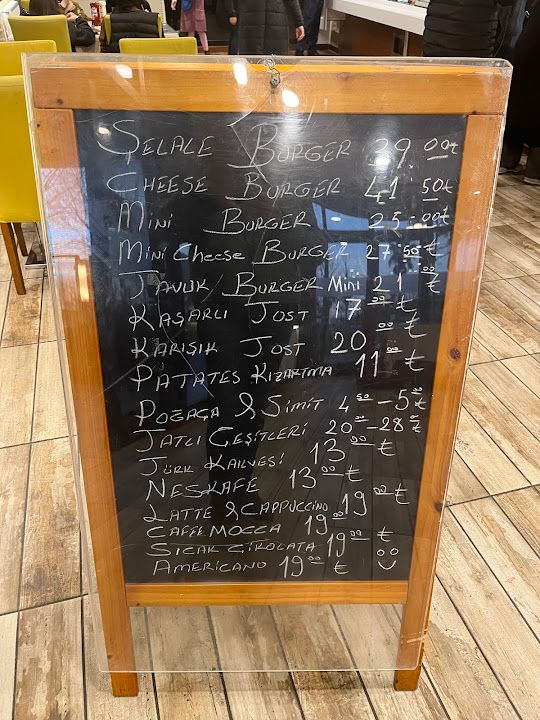 ŞELALE BURGER 39 00 ₺
CHEESE BURGER 41 50 ₺
MiNi BURGER 25-00 ₺
MiNi CHeese BURGER 27 50 ₺
TAVUK BURGER Mini 21 00 ₺
KAŞARLI TOST 17 00 ₺
KARIŞIK TOST 20 00 ₺
PATATES KIZARTMA 11 00 ₺
POĞAÇA & SiMiT 4 50 - 5 00 ₺
TATLI ÇEŞiTLERi 20 00 - 28 00 ₺
TÜRK KAHVESi 13 00 ₺
NESKAFE 13 00 ₺
LATTE & CAPPUCCINO 19 00 ₺
CAFFE MOCCA 19 00
SICAK ÇiKOLATA 19 00 ₺
AMERiCANO 19 00 ₺